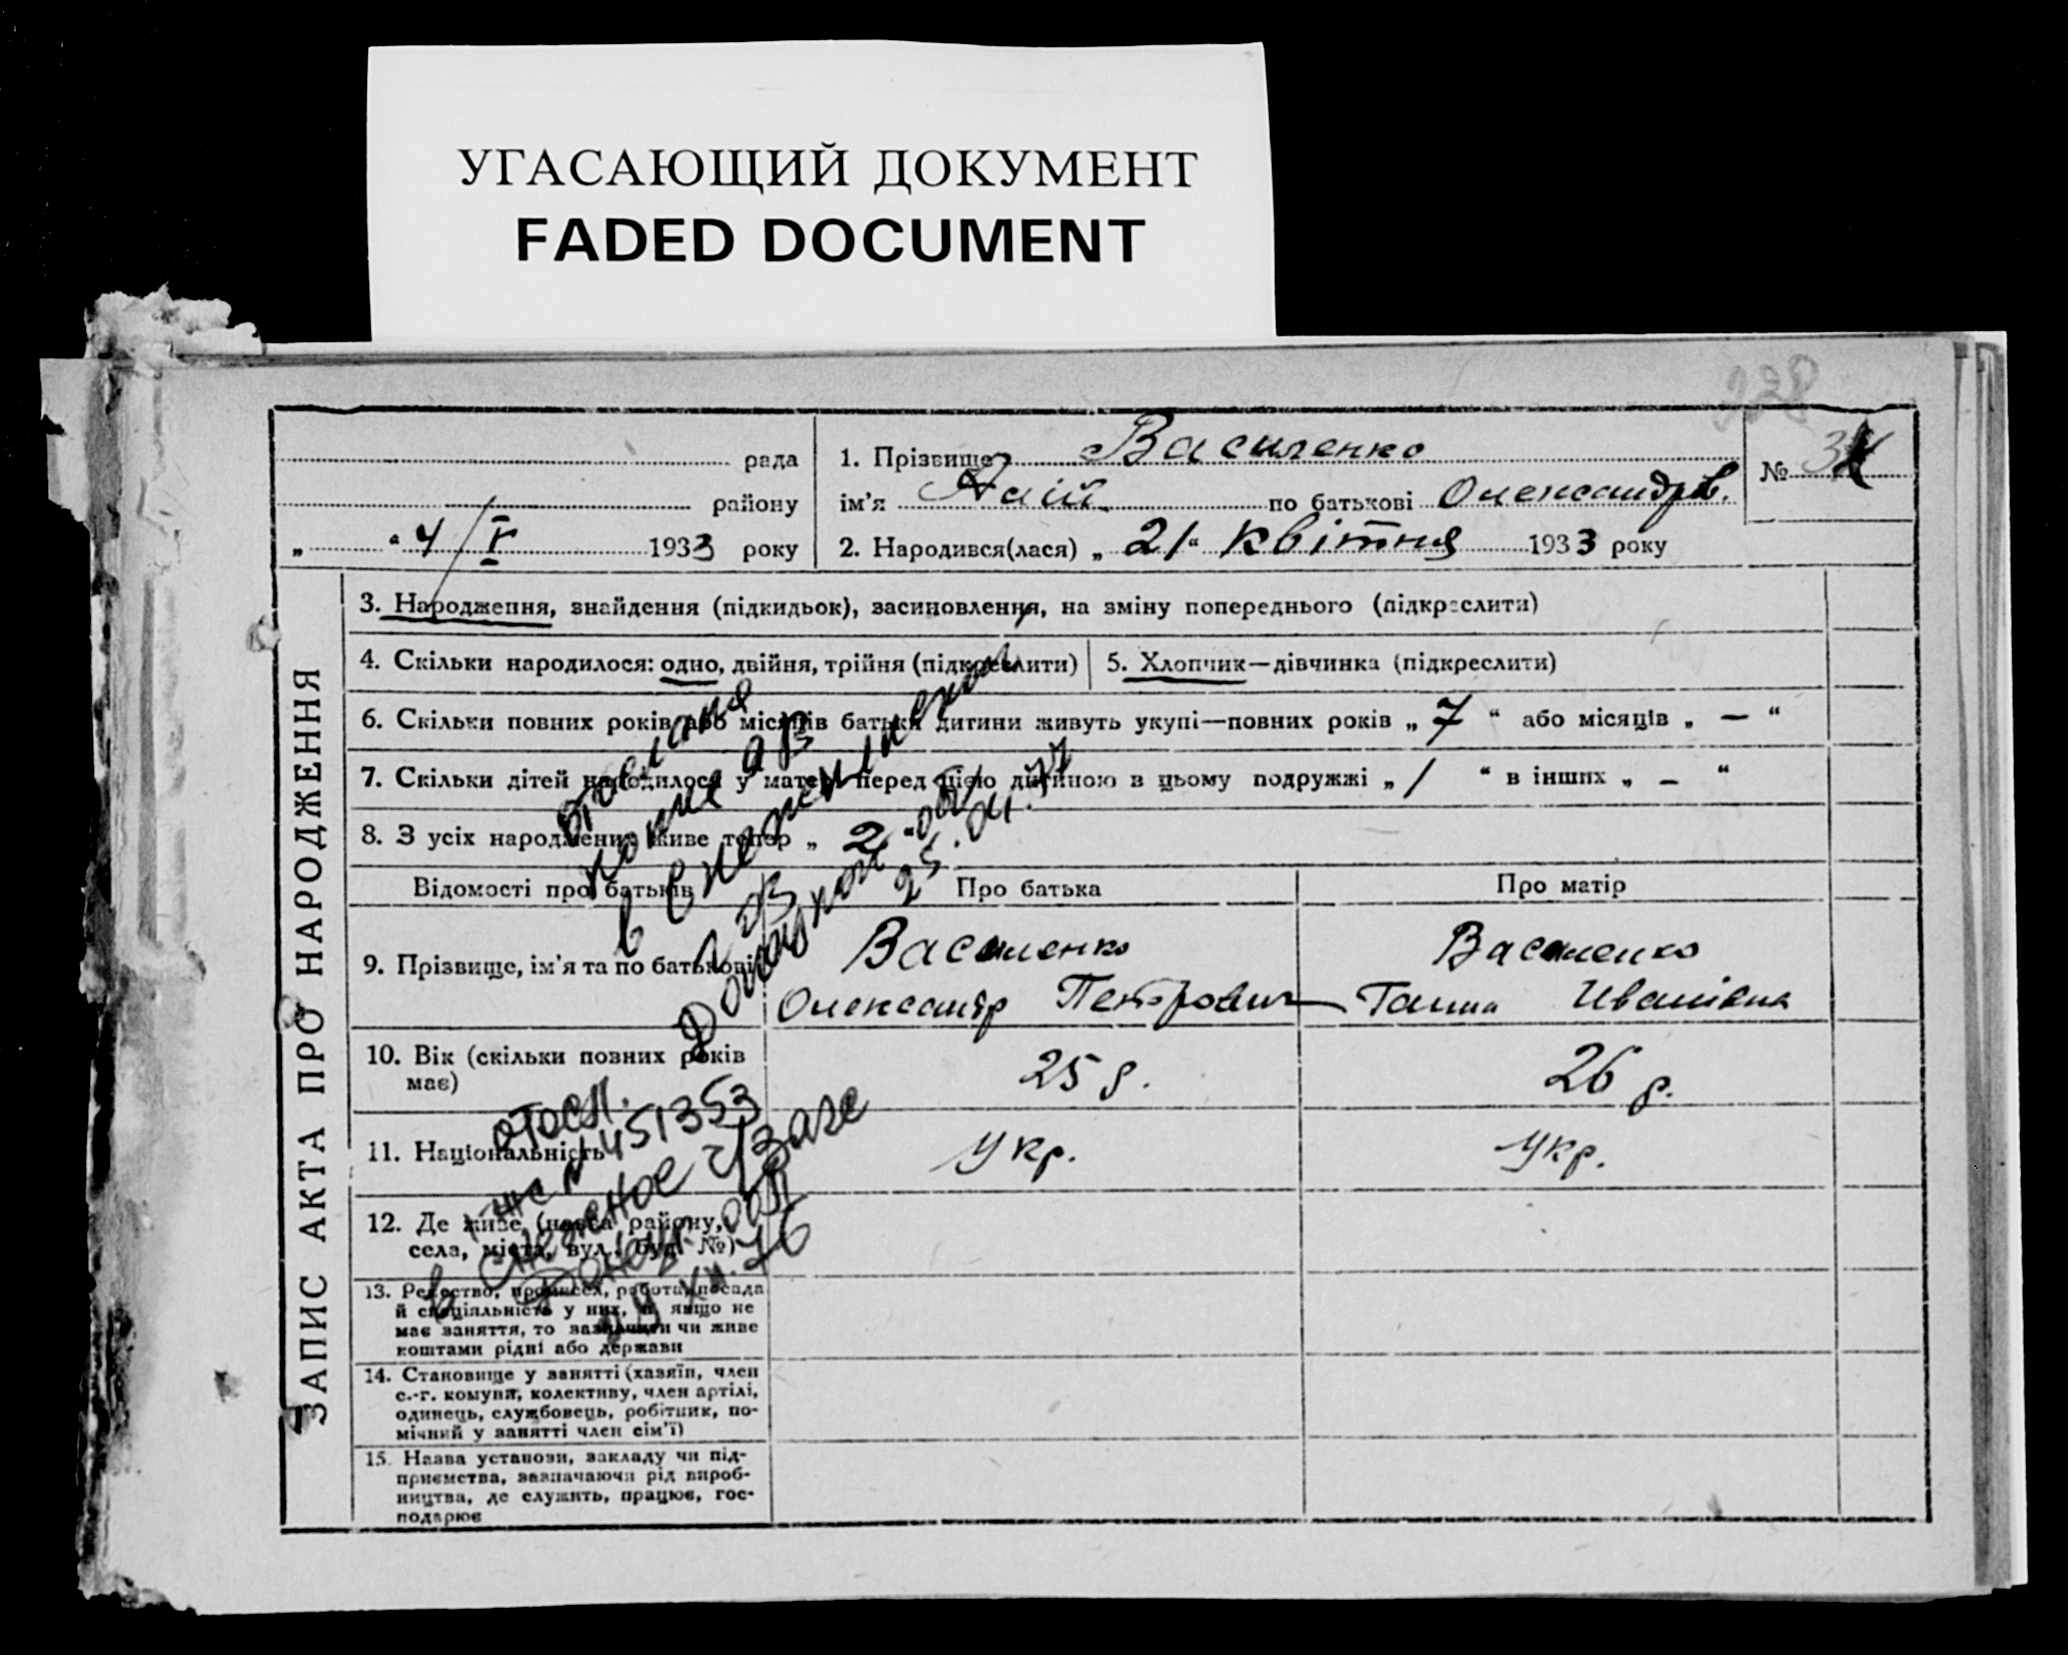 УГАСАЮЩИЙ ДОКУМЕНТ
FADED DOCUMENT
рада
району
„ “ 4/V 1933 року
1. Прізвище Василенко
ім’я по батькові Олександров.
2. Народився(лася) „ 21 “ Квітня 1933 року
№
ЗАПИС АКТА ПРО НАРОДЖЕННЯ
3. Народження, знайдення (підкидьок), засиновлення, на зміну попереднього (підкреслити)
4. Скільки народилося: одно, двійня, трійня (підкреслити)
5. Хлопчик—дівчинка (підкреслити)
6. Скільки повних років або місяців батьки дитини живуть укупі—повних років „ 7 “ або місяців „ — “
7. Скільки дітей народилося у матери перед цією дитиною в цьому подружжі „ 1 “ в інших „ – “
8. З усіх народжених живе тепер „ 2 “
Відомості про батьків
Про батька
Про матір
9. Прізвище, ім’я та по батькові
Василенко
Олександр Петрович
Василенко
Ганна Иванівна
10. Вік (скільки повних років
має)
25 р.
26 р.
11. Національність
Укр.
Укр.
12. Де живе (назва району,
села, міста, вул., буд. №)
13. Ремество, промисел, робота, посада
й спеціяльність у них, а якщо не
має заняття, то зазначити чи живе
коштами рідні або держави
14. Становище у занятті (хазяїн, член
с.-г. комуни, колективу, член артілі,
одинець, службовець, робітник, по-
мічний у занятті член сім’ї)
15. Назва установи, закладу чи під-
приємства, зазначаючи рід вироб-
ництва, де служить, працює, гос-
подарює
отослана
копия
в
обл
25.04.77
отосл.
№ 451353
в Снежное г/загс
Донецк. обл
XII.76